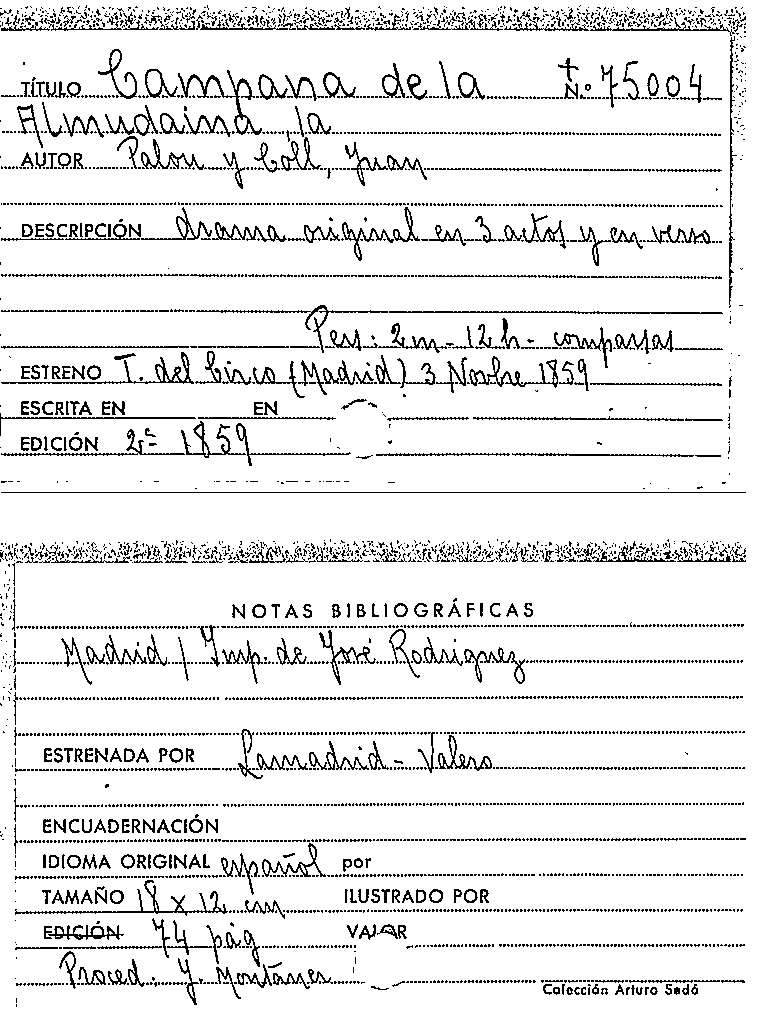 TÍTULO Campana de la N.º 75004
Almudaina, la
AUTOR Palou y Coll, Juan
DESCRIPCIÓN drama original en 3 actos y en verso
Pers: 2 m - 12 h - comparsas
ESTRENO T. del Circo (Madrid) 3 Novbre 1859
ESCRITA EN EN
EDICIÓN 2ª 1859
NOTAS BIBLIOGRÁFICAS
Madrid / Imp. de José Rodriguez
ESTRENADA POR Lamadrid - Valero
ENCUADERNACIÓN
IDIOMA ORIGINAL español por
TAMAÑO 18 x 12 cm ILUSTRADO POR
EDICIÓN 74 pág VALOR
Proced: Y. Montanes
Colección Arturo Sedó